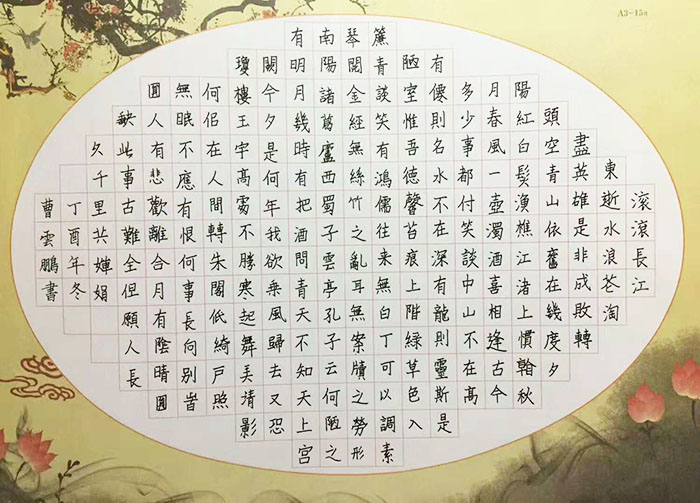 A3-15a
滾滾長江
東逝水浪花淘
盡英雄是非成敗轉
頭空青山依舊在幾度夕
陽紅白髮漁樵江渚上慣翰秋
月春風一壺濁酒喜相逢古今
多少事都付笑談中山不在高
有僊則名水不在深有龍則靈斯是
陋室惟吾德馨苔痕上階綠草色入
簾青談笑有鴻儒往來無白丁可以調素
琴閲金經無絲竹之亂耳無案牘之勞形
南陽諸葛廬西蜀子雲亭孔子云何陋之
有明月幾時有把酒問青天不知天上宮
闕今夕是何年我欲乘風歸去又恐
瓊樓玉宇高處不勝寒起舞弄清影
何佀在人間轉朱閣低綺戶照
無眠不應有恨何事長向别旹
圓人有悲歡離合月有陰晴圓
缺此事古難全但願人長
久千里共嬋娟
丁酉年冬
曹雲鵬書